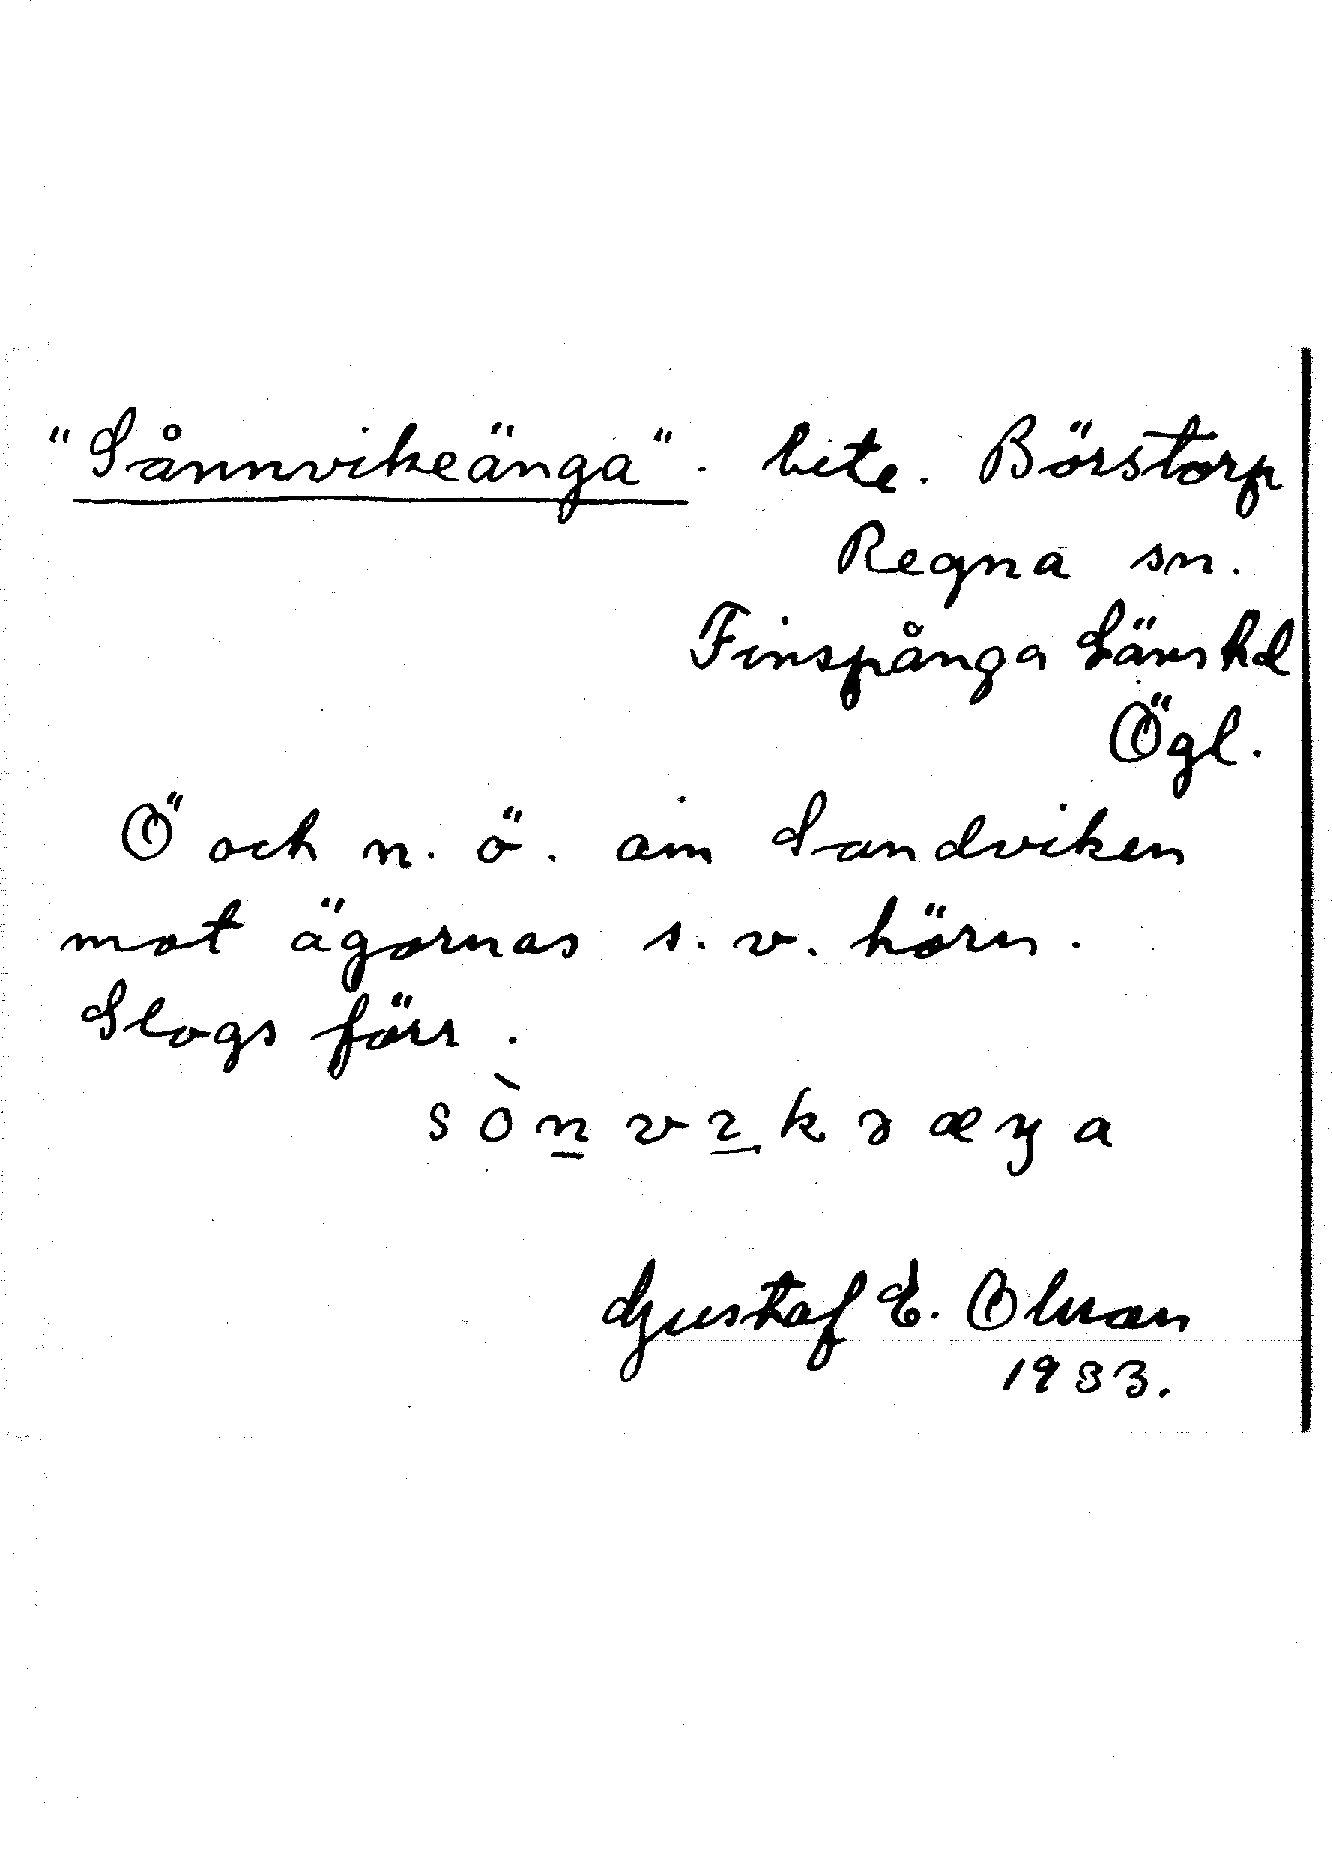 "Sånnvikeänga". bete. Börstorp
Regna sn.
Finspånga Länshd
Ögl.
Ö och n. ö. om Sandviken
mot ägornas s. v. hörn.
Slogs förr.
sòn̲vɪ̲kəæŋa
Gustaf E. Olsson
1933.